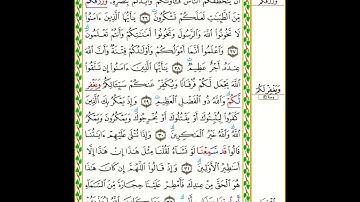 أَن يَتَخَطَّفَكُمُ ٱلنَّاسُ فَـَٔاوَىٰكُمْ وَأَيَّدَكُم بِنَصْرِهِۦ وَرَزَقَكُم
مِّنَ ٱلطَّيِّبَٰتِ لَعَلَّكُمْ تَشْكُرُونَ ٢٦ يَٰٓأَيُّهَا ٱلَّذِينَ ءَامَنُوا۟
لَا تَخُونُوا۟ ٱللَّهَ وَٱلرَّسُولَ وَتَخُونُوٓا۟ أَمَٰنَٰتِكُمْ وَأَنتُمْ تَعْلَمُونَ
٢٧ وَٱعْلَمُوٓا۟ أَنَّمَآ أَمْوَٰلُكُمْ وَأَوْلَٰدُكُمْ فِتْنَةٌ وَأَنَّ ٱللَّهَ
عِندَهُۥٓ أَجْرٌ عَظِيمٌ ٢٨ يَٰٓأَيُّهَا ٱلَّذِينَ ءَامَنُوٓا۟ إِن تَتَّقُوا۟
ٱللَّهَ يَجْعَل لَّكُمْ فُرْقَانًا وَيُكَفِّرْ عَنكُمْ سَيِّـَٔاتِكُمْ وَيَغْفِر
لَّكُمْ وَٱللَّهُ ذُو ٱلْفَضْلِ ٱلْعَظِيمِ ٢٩ وَإِذْ يَمْكُرُ بِكَ ٱلَّذِينَ
كَفَرُوا۟ لِيُثْبِتُوكَ أَوْ يَقْتُلُوكَ أَوْ يُخْرِجُوكَ وَيَمْكُرُونَ وَيَمْكُرُ
ٱللَّهُ وَٱللَّهُ خَيْرُ ٱلْمَٰكِرِينَ ٣٠ وَإِذَا تُتْلَىٰ عَلَيْهِمْ ءَايَٰتُنَا
قَالُوا۟ قَد سَّمِعْنَا لَوْ نَشَآءُ لَقُلْنَا مِثْلَ هَٰذَآ إِنْ هَٰذَآ إِلَّآ
أَسَٰطِيرُ ٱلْأَوَّلِينَ ٣١ وَإِذْ قَالُوا۟ ٱللَّهُمَّ إِن كَانَ هَٰذَا
هُوَ ٱلْحَقَّ مِنْ عِندِكَ فَأَمْطِرْ عَلَيْنَا حِجَارَةً مِّنَ ٱلسَّمَآءِ
وَرَزَقَكُّمْ
وَيَغْفِر لَّكُمْ